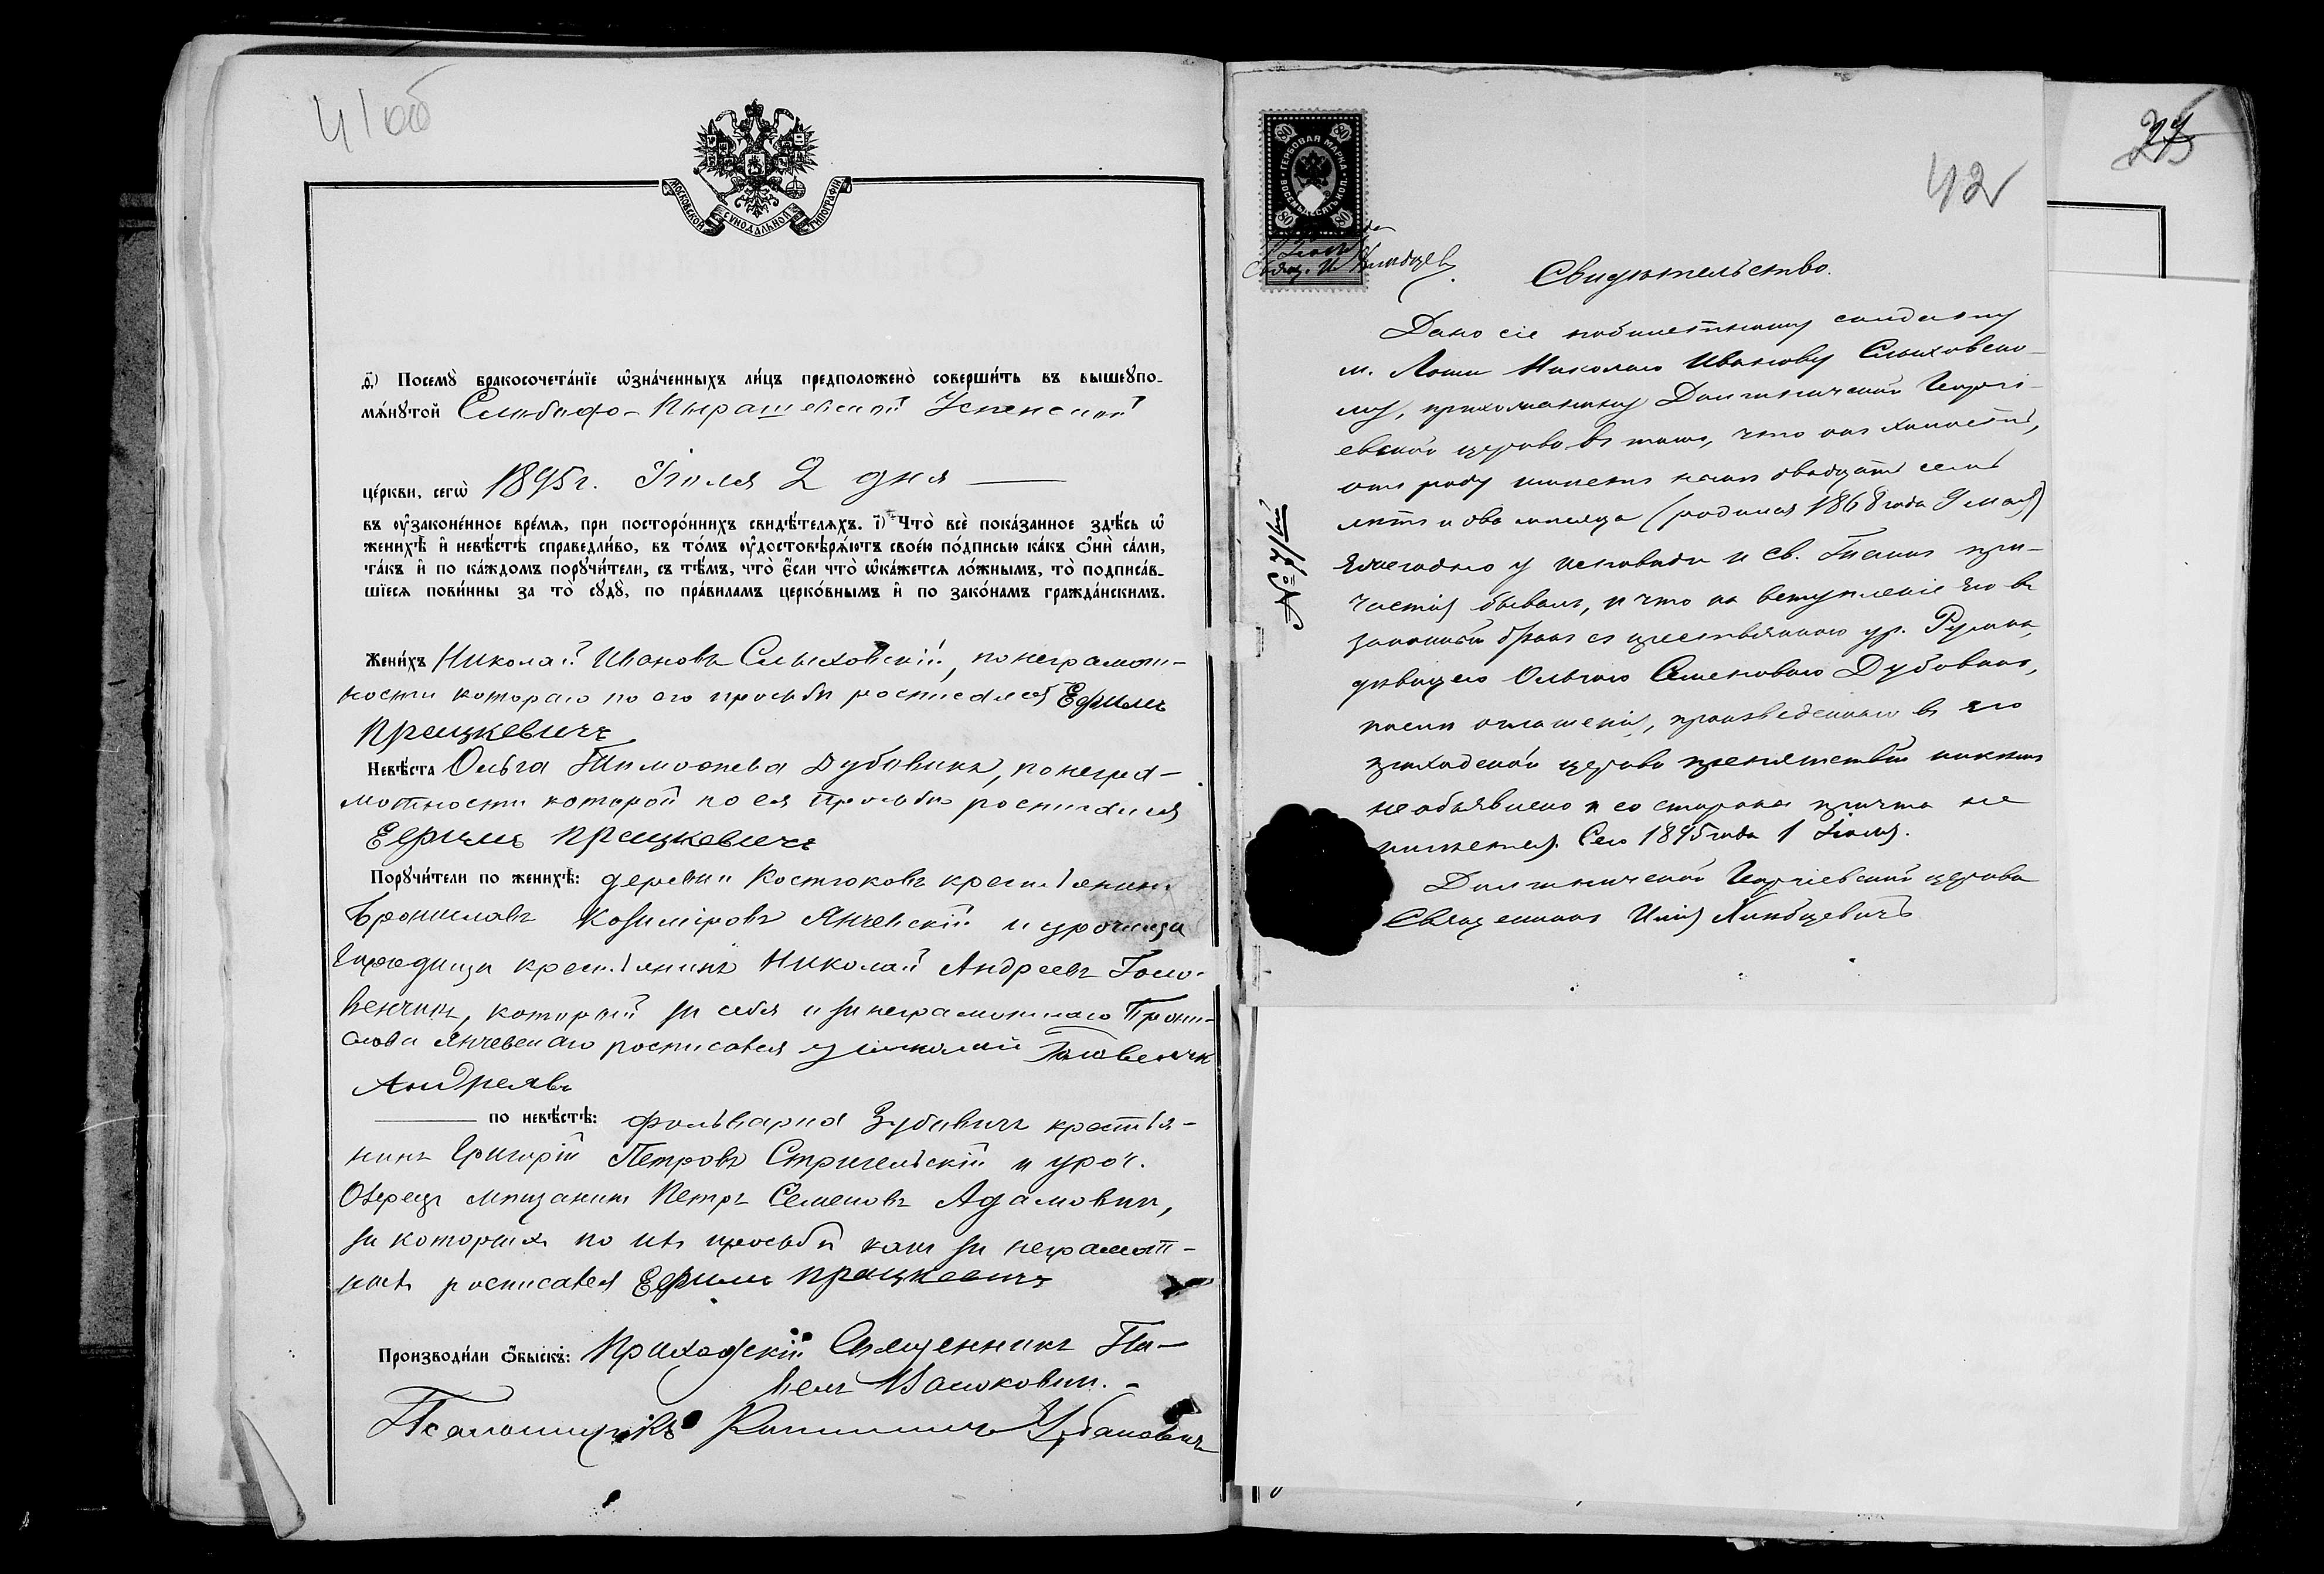 41об
МОСКОВСКОЙ СѴНОДАЛЬНОЙ ТИПОГРАФІИ
д҃) Посемꙋ̀ бракосочета́нїе ѡ҆зна́ченныхъ ли́цъ предположено̀ соверши́ть въ вышеꙋпо-
мѧ́нꙋтой Слободо-Пырашевской Успенской
це́ркви, сегѡ̀ 1895г. Іюля 2 дня
въ ᲂу҆законе́нное вре́мѧ, при посторо́ннихъ свидѣ́телѧхъ. і҃) Что̀ всѐ пока́занное здѣ́сь ѡ҆
женихѣ̀ и҆ невѣ́стѣ справедли́во, въ то́мъ ᲂу҆достовѣрѧ́ютъ свое́ю по́дписью ка́къ ѻ҆нѝ са́ми,
та́къ и҆ по ка́ждомъ порꙋчи́тели, съ тѣ́мъ, что̀ є҆́сли что̀ ѡ҆ка́жетсѧ ло́жнымъ, то̀ подписа́в-
шїесѧ пови́нны за то̀ сꙋдꙋ̀, по пра́виламъ церко́внымъ и҆ по зако́намъ гражда́нскимъ.
Жени́хъ Николай Ивановъ Слыховскій, по неграмот-
ности котораго по его просьбѣ росписался Ефимъ
Працкевичъ
Невѣ́ста Ольга Тимофеева Дубовикъ, по негра-
мотности которой по ея просьбѣ росписался
Ефимъ Працкевичъ
Порꙋчи́тели по женихѣ̀: деревни Костюковъ крестьянинъ
Брониславъ Козиміровъ Янчевскій и урочища
крестьянинъ Николай Андреевъ Голо-
венчикъ, который за себя и за неграмотнаго Брони-
слава Янчевскаго росписался Николай Головенчик
Андреявъ
по невѣ́стѣ: фольварка Зубовичъ крестья-
нинъ Григорій Петровъ Стригельскій и уроч.
мѣщанинъ Петръ Семеновъ Адамовичъ,
за которыхъ по ихъ просьбѣ какъ за неграмот-
ныхъ росписался Ефимъ Працкевичъ
Производи́ли ѻ҆́быскъ: Приходскій Священникъ Па-
велъ
Псаломщикъ Урбановичъ
25
42
ГЕРБОВАЯ МАРКА ВОСЕМЬДЕСЯТЪ КОП.
80 80 80 80
Свящ. И.
№ 7
Свидѣтельство.
Дано сіе солдату
м. Николаю Иванову Слыховско-
му, прихожанину Георгі-
евской церкви въ томъ, что онъ холостъ,
отъ роду имѣетъ двадцать семь
лѣтъ и два мѣсяца (родился 1868 года 9 мая)
ежегодно у исповѣди и Св. Таинъ при-
частія бывалъ, и что на вступленіе его въ
законный бракъ съ крестьянкою ур.
дѣвицею Ольгою Семеновою Дубовикъ,
послѣ оглашенія, произведеннаго въ его
приходской церкви препятствій никѣмъ
не объявлено и со стороны причта не
имѣется. Сего 1895 года 1 Іюля.
Георгіевской церкви
Священникъ